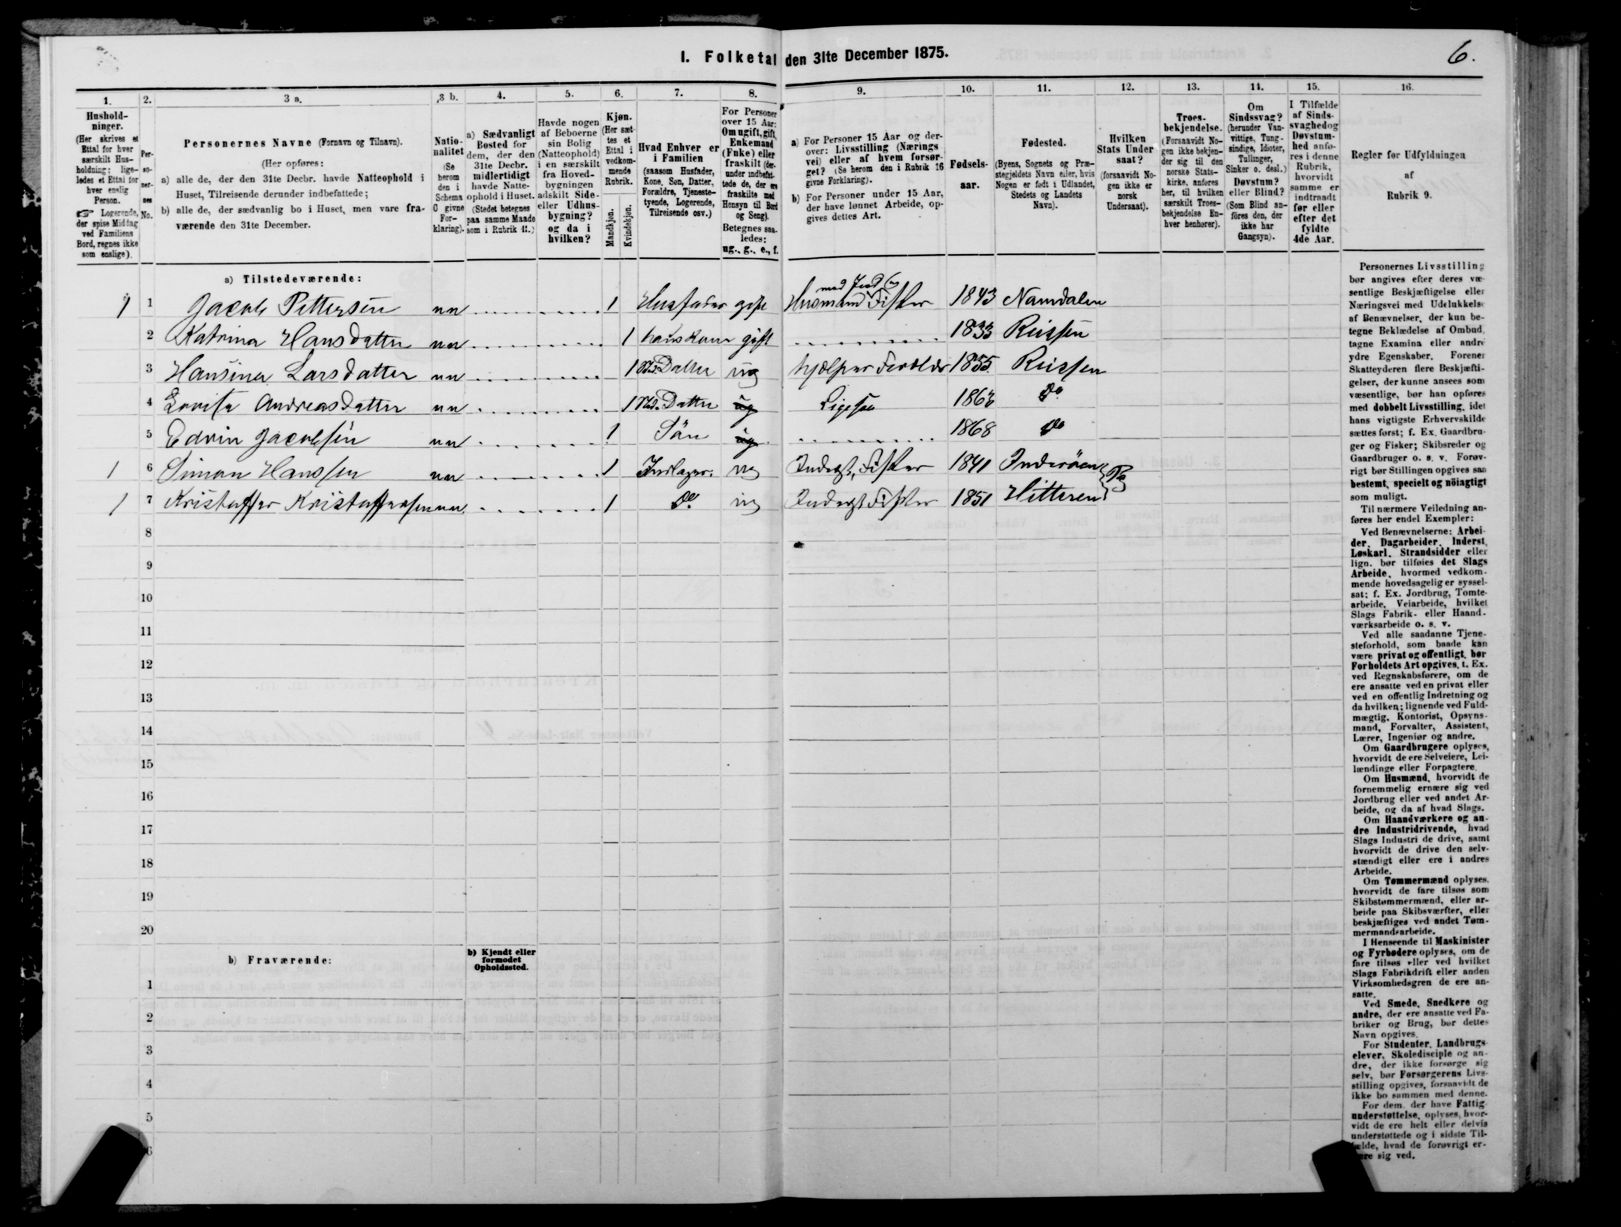 I. Folketal den 31te December 1875.
6.
1.
Hushold-
ninger.
(Her skrives et
Ettal for hver
særskilt Hus-
holdning; lige-
ledes et Ettal for
hver enslig
Person.
☞ Logerende,
der spise Middag
ved Familiens
Bord, regnes ikke
som enslige).
2.
Per-
so-
ner-
nes
No.
3 a.
Personernes Navne (Fornavn og Tilnavn).
(Her opføres:
a) alle de, der den 31te Decbr. havde Natteophold i
Huset, Tilreisende derunder indbefattede;
b) alle de, der sædvanlig bo i Huset, men vare fra-
værende den 31te December.
3 b.
Natio-
nalitet
(Se
herom
den i
Schema
C givne
For-
klaring).
4.
a) Sædvanligt
Bosted for
dem, der den
31te Decbr.
midlertidigt
havde Natte-
ophold i Huset.
(Stedet betegnes
paa samme Maade
som i Rubrik 11.)
5.
Havde nogen
af Beboerne
sin Bolig
(Natteophold)
i en særskilt
fra Hoved-
bygningen
adskilt Side-
eller Udhus-
bygning?
og da i
hvilken?
6.
Kjøn.
(Her sæt-
tes et
Ettal i
vedkom-
mende
Rubrik.
Mandkjøn.
Kvindekjøn.
7.
Hvad Enhver er
i Familien
(saasom Husfader,
Kone, Søn, Datter,
Forældre, Tjeneste-
tyende, Logerende,
Tilreisende osv.)
8.
For Personer
over 15 Aar:
Om ugift, gift,
Enkemand
(Enke) eller
fraskilt (der-
under indbefat-
tede de, der ere
fraskilte med
Hensyn til Bord
og Seng).
Betegnes saa-
ledes:
ug., g., e., f.
9.
a) For Personer 15 Aar og der-
over: Livsstilling (Nærings
vei) eller af hvem forsør-
get? (Se herom den i Rubrik 16
givne Forklaring).
b) For Personer under 15 Aar,
der have lønnet Arbeide, op-
gives dettes Art.
10.
Fødsels-
aar.
11.
Fødested.
(Byens, Sognets og Præ-
stegjeldets Navn eller, hvis
Nogen er født i Udlandet,
Stedets og Landets
Navn).
12.
Hvilken
Stats Under
saat?
(forsaavidt No-
gen ikke er
norsk
Undersaat).
13.
Troes-
bekjendelse.
(Forsaavidt No-
gen ikke bekjen-
der sig til den
norske Stats-
kirke, anføres
her, til hvilken
særskilt Troes-
bekjendelse En-
hver henhører).
14.
Om
Sindssvag?
(herunder Van-
vittige, Tung-
sindige, Idioter,
Tullinger,
Sinker o. desl.)
Døvstum?
eller Blind?
(Som Blind an-
føres den, der
ikke har
Gangsyn).
15.
I Tilfælde
af Sinds-
svaghed og
Døvstum-
hed anfø-
res i denne
Rubrik,
hvorvidt
samme er
indtraadt
før eller
efter det
fyldte
4de Aar.
16.
Regler for Udfyldningen
af
Rubrik 9.
a) Tilstedeværende:
1 1 Jacob Pettersen nn 1 Husfader gift Husmand med Jord Fisker 1843 Namdalen
2 Katrina Hansdatter nn 1 hans Kone gift 1833 Reissen
3 Hansina Larsdatter nn 1 Datter ug hjælper Foreldre 1855 Reissen
4 Lovisa Andreasdatter nn 1 Datter ug Ligesaa 1863 Do
5 Edvin Jacobsen nn 1 Søn ug 1868 Do
1 6 Simon Hanssen nn 1 Indlager. ug Inderst, Fisker 1841 Inderøen
1 7 Kristoffer Kristoffersen nn 1 Do ug Inderst Fisker 1851 Hitteren
8
9
10
11
12
13
14
15
16
17
18
19
20
b) Fraværende:
b) Kjendt eller
formodet
Opholdssted.
1
2
3
4
5
6
Personernes Livsstilling
bør angives efter deres væ-
sentlige Beskjæftigelse eller
Næringsvei med Udelukkelse
af Benævnelser, der kun be-
tegne Beklædelse af Ombud,
tagne Examina eller andre
ydre Egenskaber. Forener
Skatteyderen flere Beskjæfti-
gelser, der kunne ansees som
væsentlige, bør han opføres
med dobbelt Livsstilling, idet
hans vigtigste Erhvervskilde
sættes først; f. Ex. Gaardbru-
ger og Fisker; Skibsreder og
Gaardbruger o. s. v. Forøv-
rigt bør Stillingen opgives saa
bestemt, specielt og nöiagtigt
som muligt.
Til nærmere Veiledning an-
føres her endel Exempler:
Ved Benævnelserne: Arbei-
der, Dagarbeider, Inderst,
Løskarl, Strandsidder eller
lign. bør tilføies det Slags
Arbeide, hvormed vedkom-
mende hovedsagelig er syssel-
sat; f. Ex. Jordbrug, Tomte-
arbeide, Veiarbeide, hvilket
Slags Fabrik- eller Haand-
værksarbeide o. s. v.
Ved alle saadanne Tjene-
steforhold, som baade kan
være privat og offentligt, bør
Forholdets Art opgives, t. Ex.
ved Regnskabsførere, om de
ere ansatte ved en privat eller
ved en offentlig Indretning og
da hvilken; lignende ved Fuld-
mægtig, Kontorist, Opsyns-
mand, Forvalter, Assistent,
Lærer, Ingeniør og andre.
Om Gaardbrugere oplyses,
hvorvidt de ere Selveiere, Lei-
lændinge eller Forpagtere.
Om Husmænd, hvorvidt de
fornemmelig ernære sig ved
Jordbrug eller ved andet Ar-
beide, og da af hvad Slags.
Om Haandværkere og an-
dre Industridrivende, hvad
Slags Industri de drive, samt
hvorvidt de drive den selv-
stændigt eller ere i andres
Arbeide.
Om Tømmermænd oplyses,
hvorvidt de fare tilsøs som
Skibstømmermænd, eller ar-
beide paa Skibsværfter, eller
beskjæftiges ved andet Tøm-
mermandsarbeide.
I Henseende til Maskinister
og Fyrbødere oplyses, om de
fare tilsøs eller ved hvilket
Slags Fabrikdrift eller anden
Virksomhedsgren de ere an-
satte.
Ved Smede, Snedkere og
andre, der ere ansatte ved Fa-
briker og Brug, bør dettes
Navn opgives.
For Studenter, Landbrugs-
elever, Skoledisciple og an-
dre, der ikke forsørge sig
selv, bør Forsørgerens Livs-
stilling opgives, forsaavidt de
ikke bo sammen med denne.
For dem, der have Fattig-
understøttelse, oplyses, hvor-
vidt de ere helt eller delvis
understøttede og i sidste Til-
fælde, hvad de forøvrigt er-
nære sig ved.